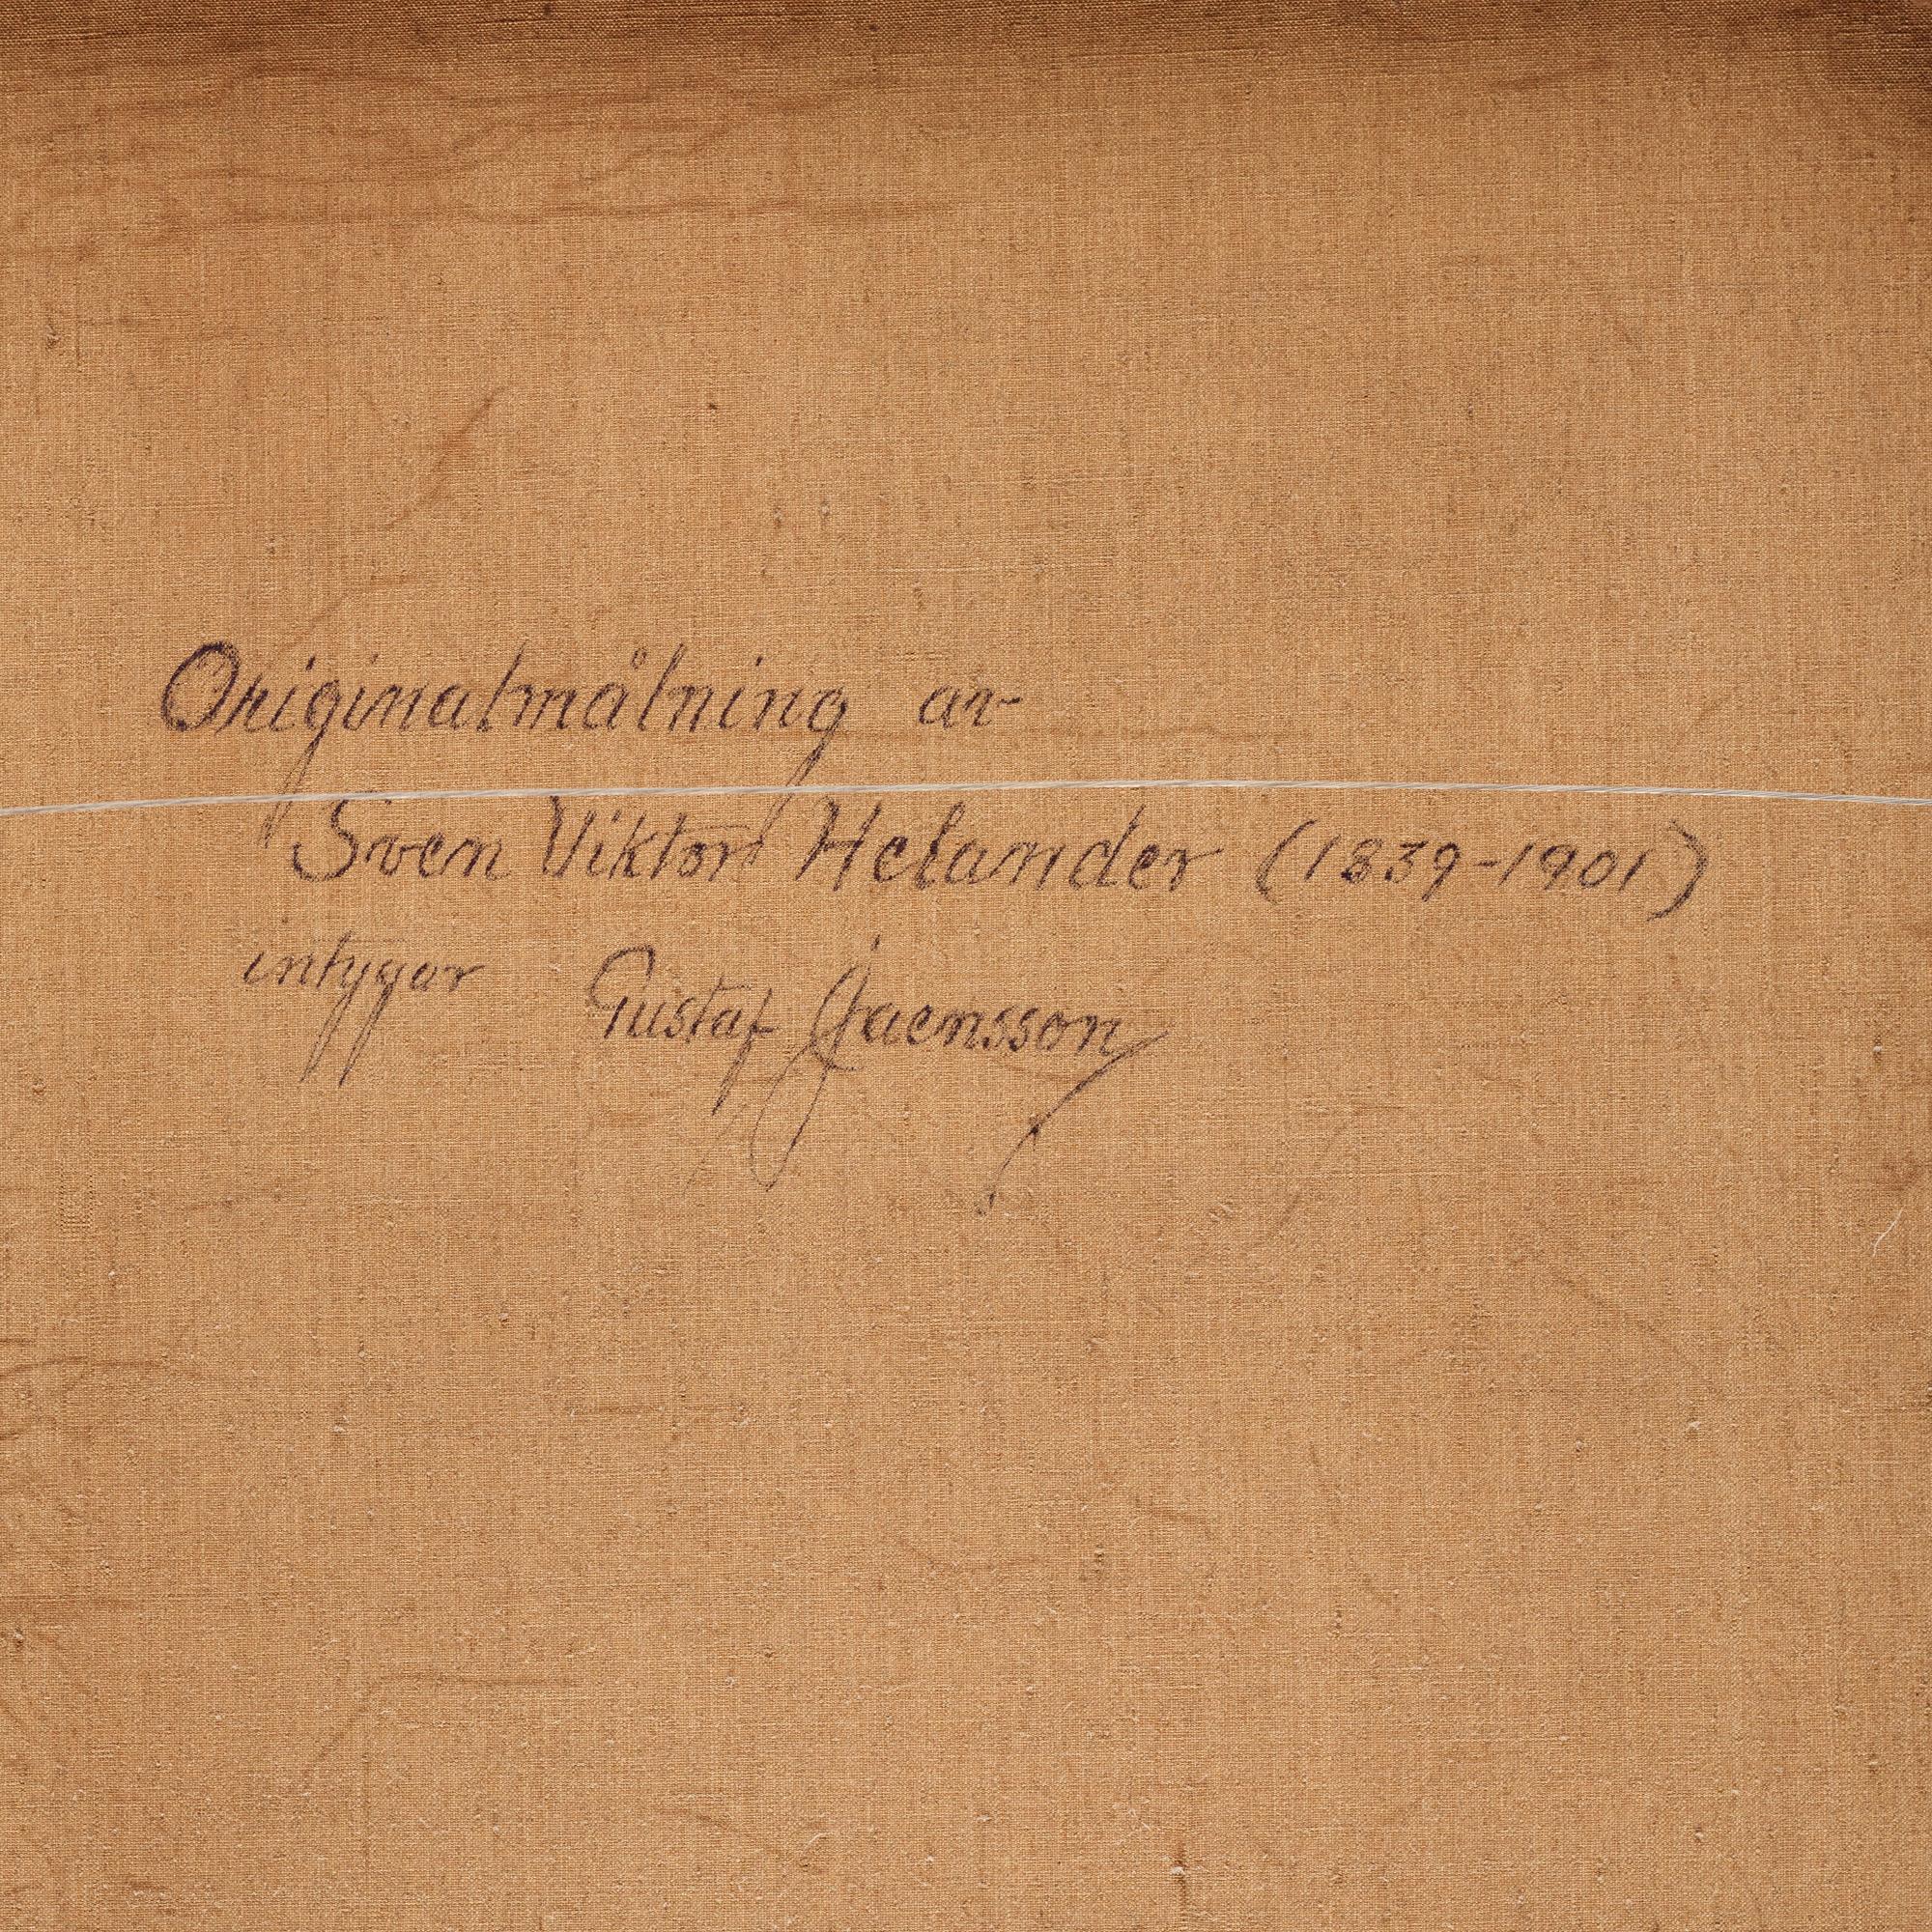 Originalmålning av
Sven Viktor Helander (1839-1901)
intygar Gustaf Jaensson